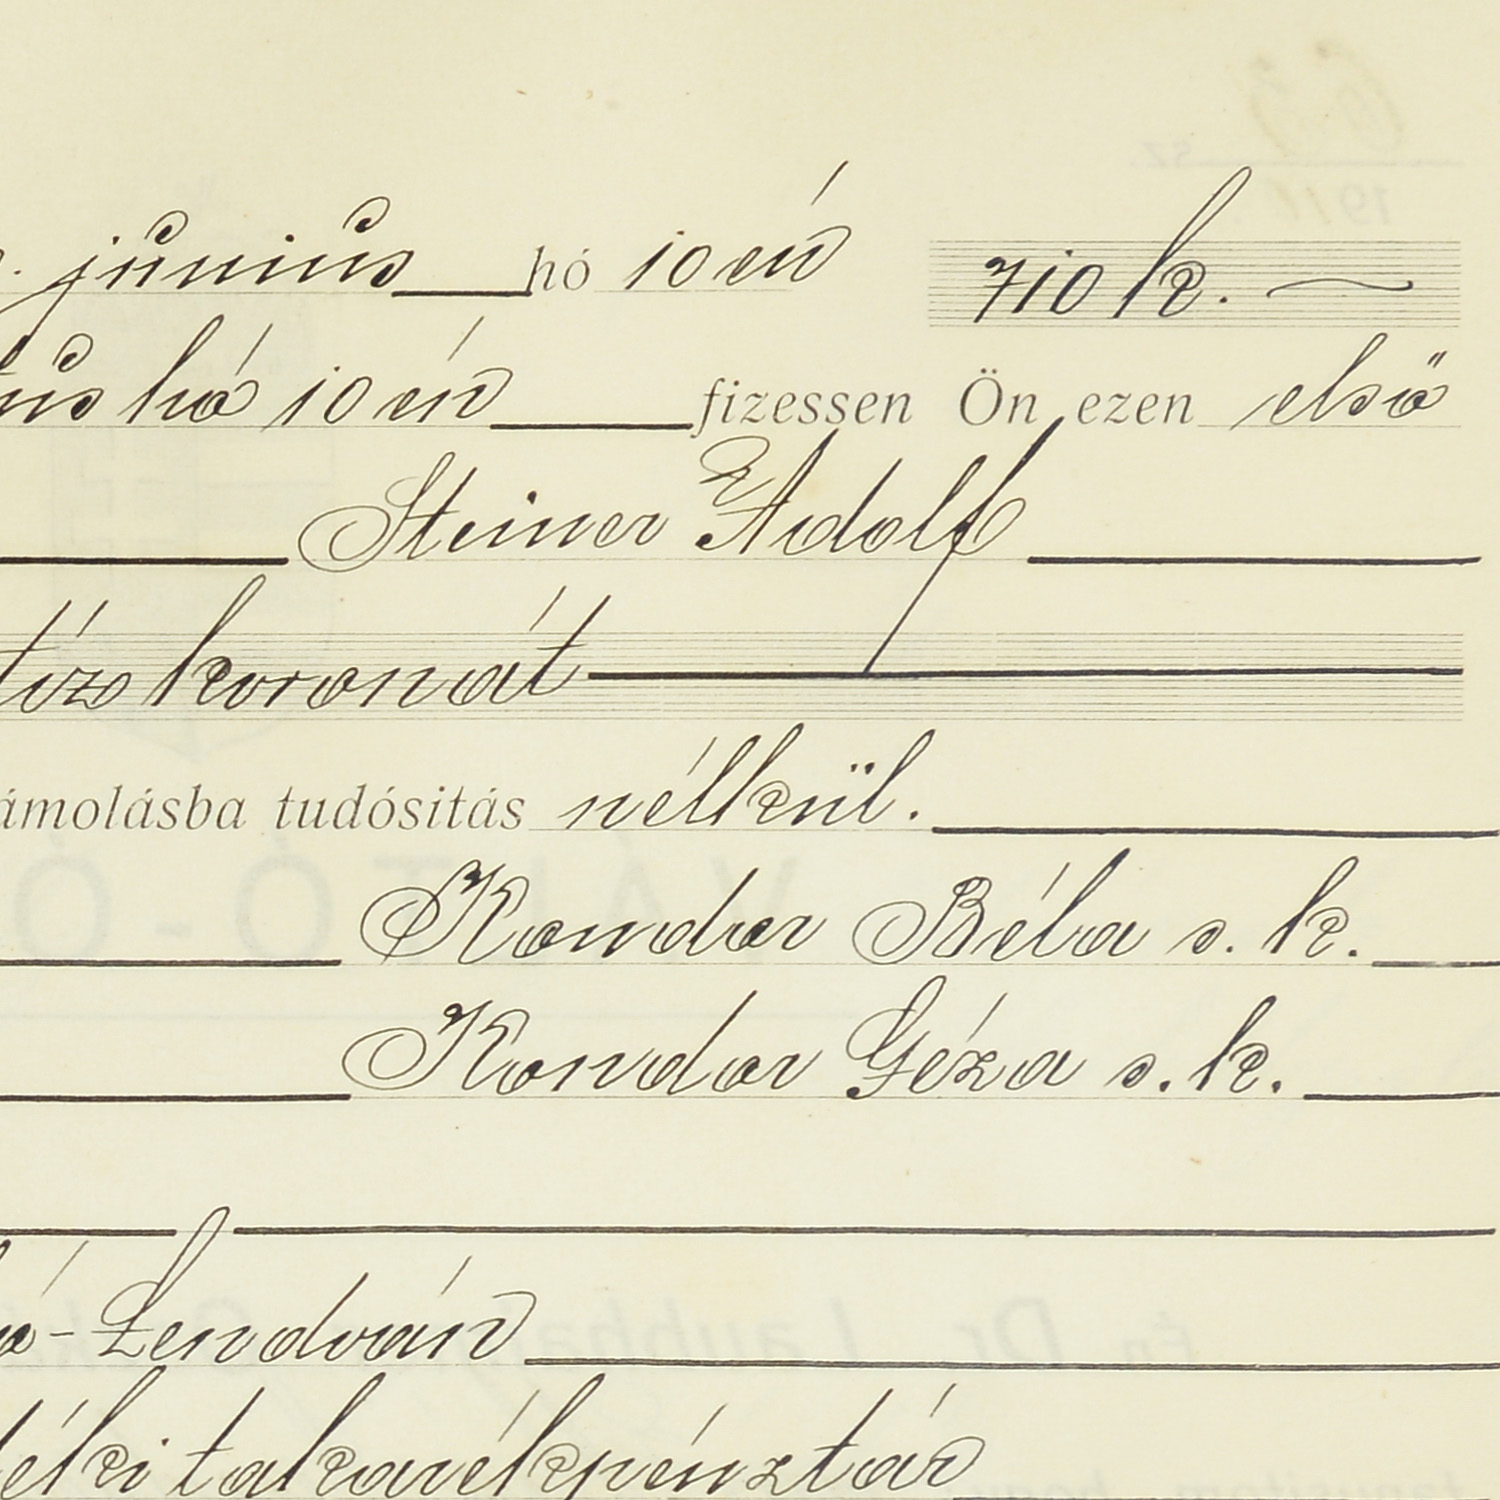 június hó 10 én 710 k.
hó 10 én fizessen Ön ezen első
Steiner Adolf
tíz koronát
ámolásba tudósitás nélkül.
Kondor Béla s. k.
Kondor Géza s. k.
-Lendván
takarékpénztár